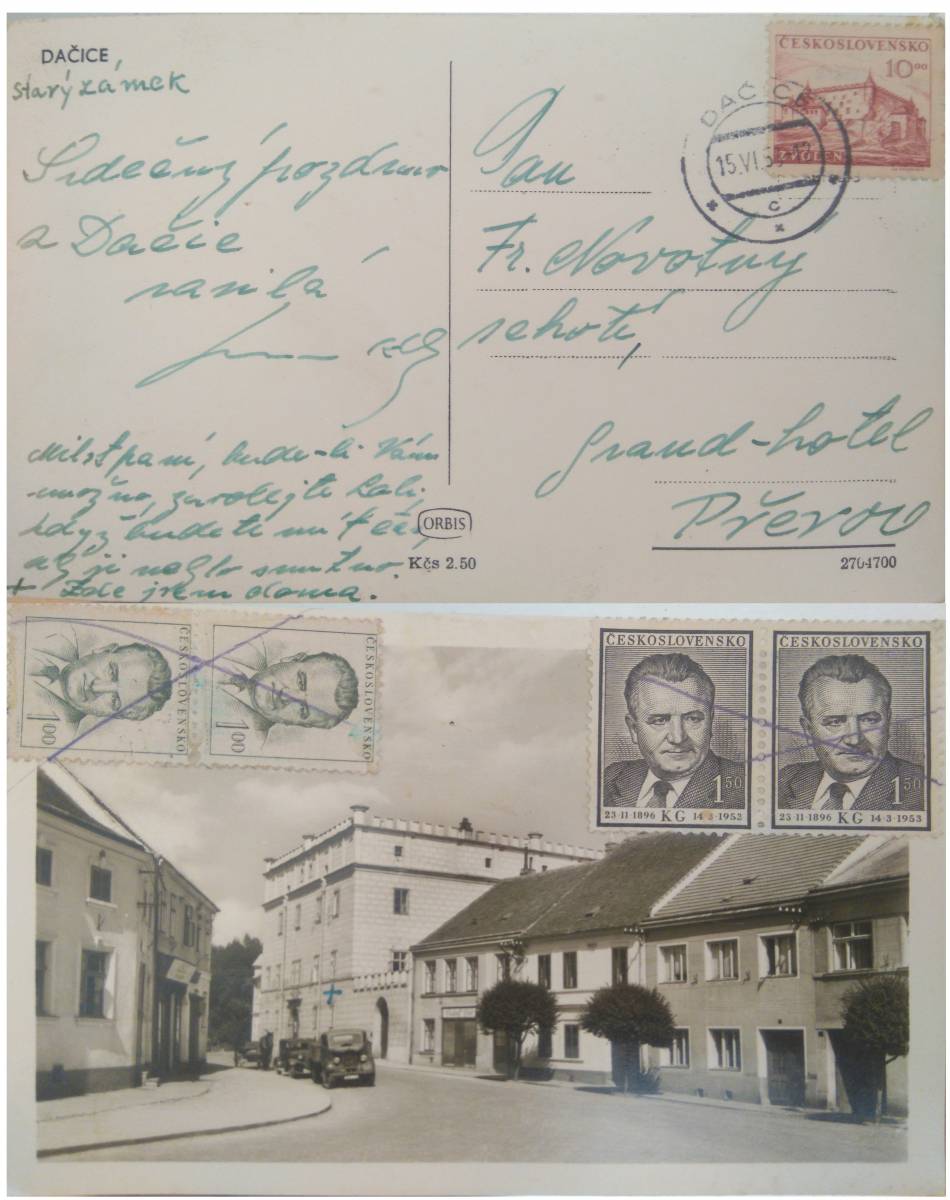 DAČICE
Starý zámek
Srdečný pozdrav
z Dačic
zasílá
Milostpaní, bude-li Vám
možno, zavolejte
když budete mít čas,
aby jí nebylo smutno.
+ Zde jsem doma.
ČESKOSLOVENSKO
10⁰⁰
ZVOLEN
DAČICE 1
15.VI.5
c
Pan
Fr. Novotný
Grand-hotel
Přerov
ORBIS
Kčs 2.50
2704700
ČESKOSLOVENSKO
1.00
ČESKOSLOVENSKO
1.00
ČESKOSLOVENSKO
1⁵⁰
23·II·1896 KG 14·3·1953
ČESKOSLOVENSKO
1⁵⁰
23·II·1896 KG 14·3·1953